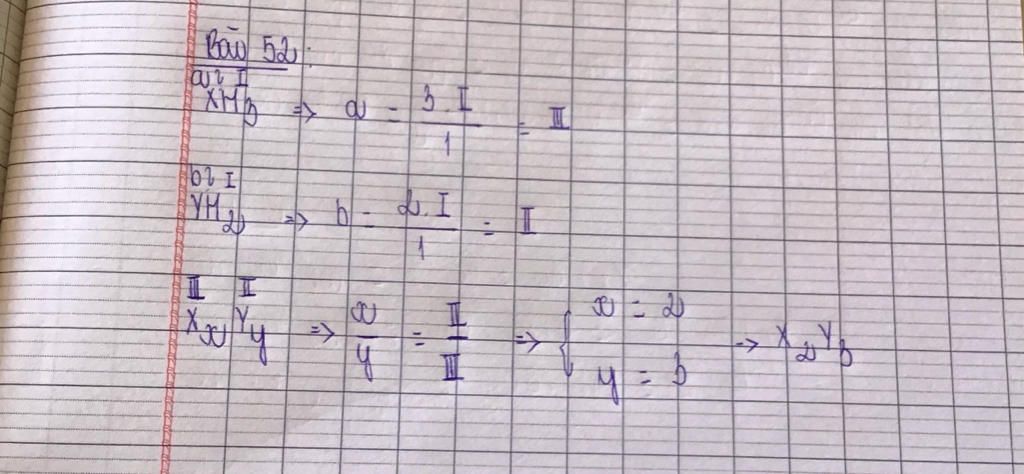 Bài 52:
a? I
XH3 => a = 3.I/1 = III
b? I
YH2 => b = 2.I/1 = II
III II
XxYy => x/y = II/III => { x = 2
y = 3 -> X2Y3